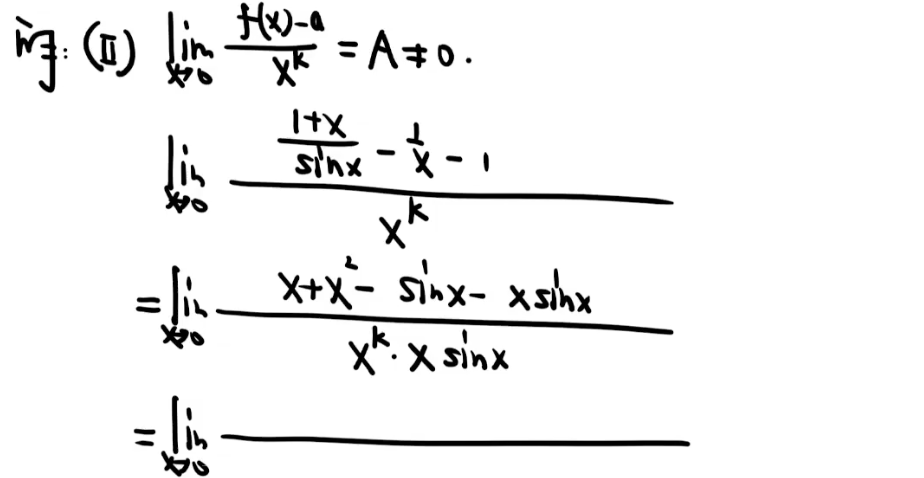 解: (II) lim x→0 (f(x)-a)/x^k = A ≠ 0.
lim x→0 ((1+x)/sinx - 1/x - 1)/x^k
= lim x→0 (x+x²- sinx- xsinx)/(x^k · x sinx)
= lim x→0